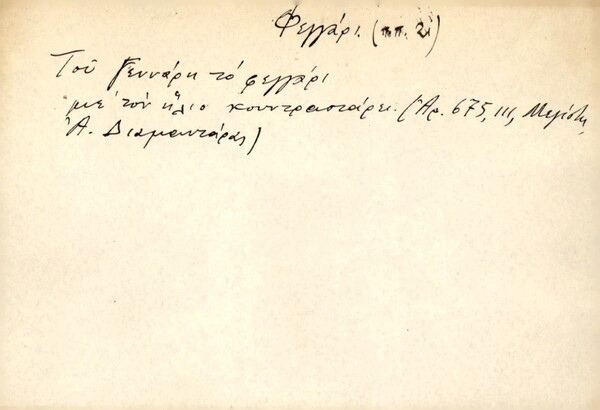 Φεγγάρι. (ππ. 2)
Τοῦ Γεννάρη τό φεγγάρι
μέ τόν ἥλιο κοντραστάρει. (Ἀρ. 675, ΙΙΙ, Μεγίστη,
Ἀ. Διαμαντάρας)